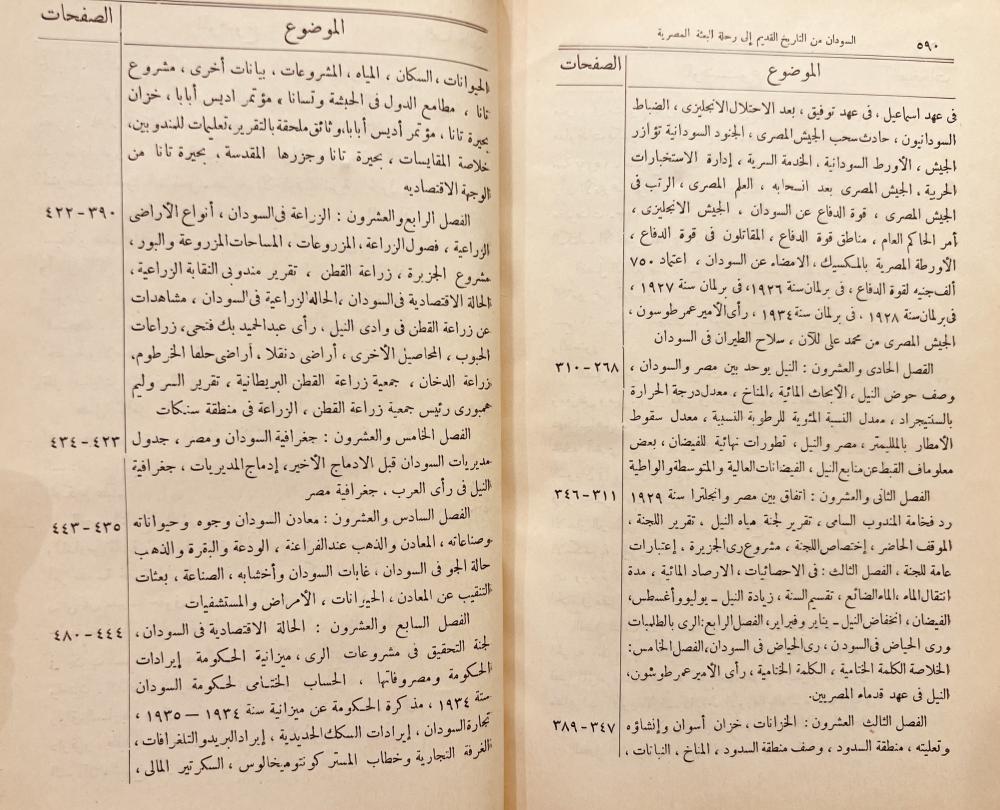 ٥٩٠
السودان من التاريخ القديم إلى رحلة البعثة المصرية
الموضوع
الصفحات
فى عهد اسماعيل ، فى عهد توفيق ، بعد الاحتلال الانجليزى ، الضباط
السودانيون ، حادث سحب الجيش المصرى ، الجنود السودانية تؤازر
الجيش ، الأورط السودانية ، الخدمة السرية ، إدارة الاستخبارات
الحربية ، الجيش المصرى بعد انسحابه ، العلم المصرى ، الرتب فى
الجيش المصرى ، قوة الدفاع عن السودان ، الجيش الانجليزى ،
أمر الحاكم العام ، مناطق قوة الدفاع ، المقاتلون فى قوة الدفاع ،
الأورطة المصرية بالمكسيك ، الامضاء عن السودان ، اعتماد ٧٥٠
ألف جنيه لقوة الدفاع ، فى برلمان سنة ١٩٢٦ ، فى برلمان سنة ١٩٢٧ ،
فى برلمان سنة ١٩٢٨ ، فى برلمان سنة ١٩٣٤ ، رأى الأمير عمر طوسون ،
الجيش المصرى من محمد على للآن ، سلاح الطيران فى السودان
الفصل الحادى والعشرون : النيل يوحد بين مصر والسودان ، ٢٦٨ - ٣١٠
وصف حوض النيل ، الأبحاث المائية ، المناخ ، معدل درجة الحرارة
بالسنتيجراد ، معدل النسبة المئوية للرطوبة النسبية ، معدل سقوط
الأمطار بالملليمتر ، مصر والنيل ، تطورات نهائية للفيضان ، بعض
معلوماف القبط عن منابع النيل ، الفيضانات العالية والمتوسطة والواطية
الفصل الثانى والعشرون : اتفاق بين مصر وانجلترا سنة ١٩٢٩ ٣١١ - ٣٤٦
رد فخامة المندوب السامى ، تقرير لجنة مياه النيل ، تقرير اللجنة ،
الموقف الحاضر ، إختصاص اللجنة ، مشروع رى الجزيرة ، إعتبارات
عامة للجنة ، الفصل الثالث : فى الاحصائيات ، الارصاد المائية ، مدة
انتقال الماء ، الماء الضائع ، تقسيم السنة ، زيادة النيل ــ يوليو وأغسطس ،
الفيضان ، انخفاض النيل ــ يناير وفبراير ، الفصل الرابع : الرى بالطلمبات
ورى الحياض فى السودن ، رى الحياض فى السودان ، الفصل الخامس :
الخلاصة الكلمة الختامية ، الكلمة الختامية ، رأى الأمير عمر طوشون ،
النيل فى عهد قدماء المصريين .
الفصل الثالث العشرون : الخزانات ، خزان أسوان وإنشاؤه ٣٤٧ - ٣٨٩
وتعليته ، منطقة السدود ، وصف منطقة السدود ، المناخ ، النباتات ،
الموضوع
الصفحات
الحيوانات ، السكان ، المياه ، المشروعات ، بيانات أخرى ، مشروع
تانا ، مطامع الدول فى الحبشة وتسانا ، مؤتمر اديس أبابا ، خزان
بحيرة تانا ، مؤتمر أديس أبابا ، وثائق ملحقة بالتقرير ، تعليمات للمندوبين ،
خلاصة المقايسات ، بحيرة تانا وجزرها المقدسة ، بحيرة تانا من
الوجهة الاقتصاديه
الفصل الرابع والعشرون : الزراعة فى السودان ، أنواع الأراضى ٣٩٠ - ٤٢٢
الزراعية ، فصول الزراعة ، المزروعات ، المساحات المزروعة والبور ،
مشروع الجزيرة ، زراعة القطن ، تقرير مندوبى النقابة الزراعية ،
الحالة الاقتصادية فى السودان ، الحاله الزراعية فى السودان ، مشاهدات
عن زراعة القطن فى وادى النيل ، رأى عبد الحميد بك فتحى ، زراعات
الحبوب ، المحاصيل الأخرى ، أراضى دنقلا ، أراضى حلفا الخرطوم ،
زراعة الدخان ، جمعية زراعة القطن البريطانية ، تقرير السر وليم
همبورى رئيس جمعية زراعة القطن ، الزراعة فى منطقة سنكات
الفصل الخامس والعشرون : جغرافية السودان ومصر ، جدول ٤٢٣ - ٤٣٤
مديريات السودان قبل الادماج الأخير ، إدماج المديريات ، جغرافية
النيل فى رأى العرب ، جغرافية مصر
الفصل السادس والعشرون : معادن السودان وجوه وحيواناته ٤٣٥ - ٤٤٣
وصناعاته ، المعادن والذهب عند الفراعنة ، الودعة والبقرة والذهب
حالة الجو فى السودان ، غابات السودان وأخشابه ، الصناعة ، بعثات
التنقيب عن المعادن ، الحيوانات ، الأمراض والمستشفيات
الفصل السابع والعشرون : الحالة الاقتصادية فى السودان ، ٤٤٤ - ٤٨٠
لجنة التحقيق فى مشروعات الرى ، ميزانية الحكومة إيرادات
الحكومة ومصروفاتها ، الحساب الختامى لحكومة السودان
ستة ١٩٣٤ ، مذكرة الحكومة عن ميزانية سنة ١٩٣٤ — ١٩٣٥ ،
تجارة السودان ، إيرادات السكك الحديدية ، إيراد البريد والتلغرافات ،
الغرفة التجارية وخطاب المستر كونتوميخالوس ، السكرتير المالى ،